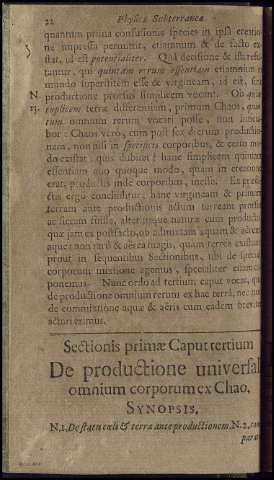 22 Physicæ Subterraneæ
quantum prima confusionis species in ipsa creatio-
ne impressa permittit, etiamnum & de facto ex-
stat, id est potentialiter. Quâ decisione & illi refu-
tantur, qui quintam rerum essentiam etiamnum in
mundo superstitem esse & virgineam, id est, sine
N. productione prorsus simplicem volunt. Ob
13. triplicem terræ differentiam, primum Chaos,
tum omnium rerum vocari posse, non
bor: Chaos vero, cum post sex dierum productio-
nem, non nisi in specificis corporibus, & certo mo-
do existat: quis dubitet? hanc simplicem quintam
essentiam eo quoque modo, quam in creatione
erat, productis inde corporibus,
ergo concluditur, hanc virgineam & puram
terram ante productionis actum terram prorsus
ac siccam fuisse, alter atque naturæ cum
quæ jam ex postfacto, ob admistam aquam & aërem
aquea non rarò & aërea magis, quam terrea existat
prout in sequentibus Sectionibus, ubi de
corporum mixtione agemus, specialiter
ponemus. Nunc ordo ad tertium caput vocat, quo
de productione omnium rerum ex hac terra, nec non
de commistione aquæ & aëris cum eadem
acturi erimus.
Sectionis primæ Caput tertium
De productione universali
omnium corporum ex Chao.
SYNOPSIS.
N. 1. De statu cœli & terræ ante productionem. N. 2.